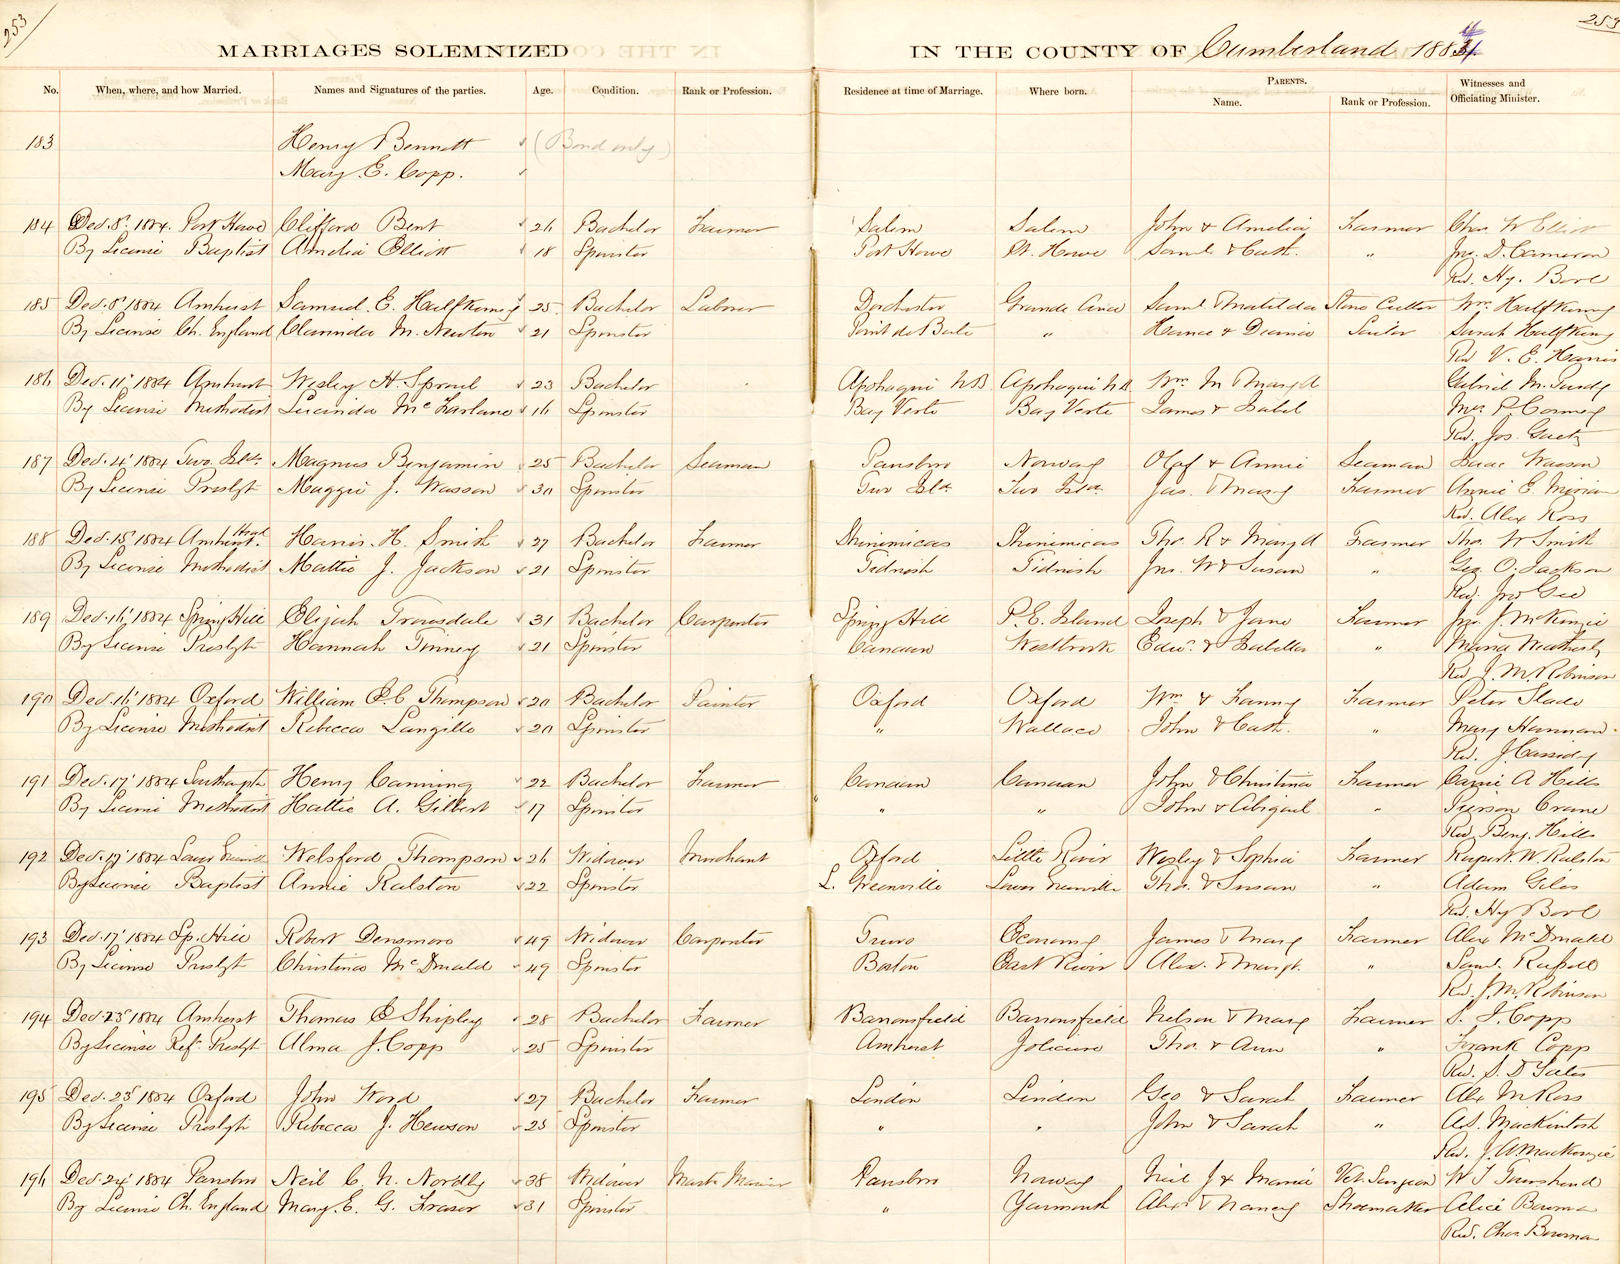 253 253
MARRIAGES SOLEMNIZED IN THE COUNTY OF Cumberland 1884
PARENTS. Witnesses and
No. When, where, and how Married. Names and Signatures of the parties. Age. Condition. Rank or Profession. Residence at time of Marriage. Where born. Name. Rank or Profession. Officiating Minister.
183 Henry Bennett (Bond only)
Mary E. Copp.
184 Dec. 8' 1884. Port Howe Clifford Bent 26 Bachelor Farmer Salem Salem John & Amelia Farmer Chas W Elliott
By License Baptist Amelia Elliott 18 Spinster Port Howe Pt. Howe Saml & Cath. " Jno. D. Cameron
Rev. Hy. Bool
185 Dec. 8' 1884 Amherst Samuel E. Halfkenny 25 Bachelor Laborer Dorchester Grande Ance Saml & Matilda Stone Cutter Wm. Halfkenny
By License Ch. England Clarinda M. Newton 21 Spinster Point de Bute " & Sarah Halfkenny
Rev V. E. Harris
186 Dec. 11' 1884 Amherst Wesley H. Sproul 23 Bachelor Apohaqui N.B Apohaqui N.B Wm. M & Mary A Gabriel M. Purdy
By License Methodist Lucinda McFarlane 16 Spinster Bay Verte Bay Verte James & Isabel Mrs.
Rev. Jos. Gaetz
187 Dec. 4' 1884 Two Islds. Magnus Benjamin 25 Bachelor Seaman Parrsboro Norway Olaf & Annie Seaman Isaac Wasson
By License Presbyt Maggie J. Wasson 30 Spinster Two Islds Two Islds Jas. & Mary Farmer Annie E.
Rev. Alex Ross
188 Dec. 15' 1884 Amherst Head Harris H. Smith 27 Bachelor Farmer Shinimicas Shinimicas Tho. R & Mary A Farmer Tho. W Smith
By License Methodist Mattie J. Jackson 21 Spinster Tidnish Tidnish Jno. W & Susan " Geo. O. Jackson
Rev. Jno Gee
189 Dec. 16' 1884 Spring Hill Elijah Trowsdale 31 Bachelor Carpenter Spring Hill P. E. Island Joseph & Jane Farmer Jno. J. McKenzie
By License Presbyt Hannah Tinney 21 Spinster Canaan Westbrook Edw. & Isabella " Maria
Rev. J. M. Robinson
190 Dec. 16' 1884 Oxford William E. C Thompson 20 Bachelor Painter Oxford Oxford Wm & Fanny Farmer Peter Slade
By License Methodist Rebecca Langille 20 Spinster " Wallace John & Cath. " Mary
Rev. J. Cassidy
191 Dec. 17' 1884 Southampton Henry Canning 22 Bachelor Farmer Canaan Canaan John & Christina Farmer Carrie A Hills
By License Methodist Hattie A. Gilbert 17 Spinster " " John & Abigail " Crane
Rev. Benj. Hills
192 Dec. 17' 1884 Lower Greenville Welsford Thompson 26 Widower Merchant Oxford Little River Wesley & Sophia Farmer Rupert W Ralston
By License Baptist Annie Ralston 22 Spinster L. Greenville Lower Greenville Tho. & Susan " Adam Giles
Rev. Hy Bool
193 Dec. 17' 1884 Sp. Hill Robert Densmore 49 Widower Carpenter Truro Economy James & Mary Farmer Alex McDonald
By License Presbyt Christina McDonald 49 Spinster Boston East River Alex. & Margt. " Saml.
Rev. J. M. Robinson
194 Dec. 23' 1884 Amherst Thomas E Shipley 28 Bachelor Farmer Barronsfield Barronsfield Nelson & Mary Farmer S. J. Copp
By License Ref. Presbyt Alma J. Copp 25 Spinster Amherst Jolicure Tho. & Ann " Frank Copp
Rev. S. D Yates
195 Dec. 23' 1884 Oxford John Wood 27 Bachelor Farmer Linden Linden Geo & Sarah Farmer Alex M Ross
By License Presbyt Rebecca J. Hewson 25 Spinster " " John & Sarah " A.S. Mackintosh
Rev. J. A MacKenzie
196 Dec. 24' 1884 Parrsboro Neil C. N. Nordby 38 Widower Master Mariner Parrsboro Norway Neil J & Maria Vet. Surgeon W T Townshend
By License Ch. England Mary E. G. Fraser 31 Spinster " Yarmouth Alex & Nancy Shoemaker Alice Bowman
Rev. Chas Bowman